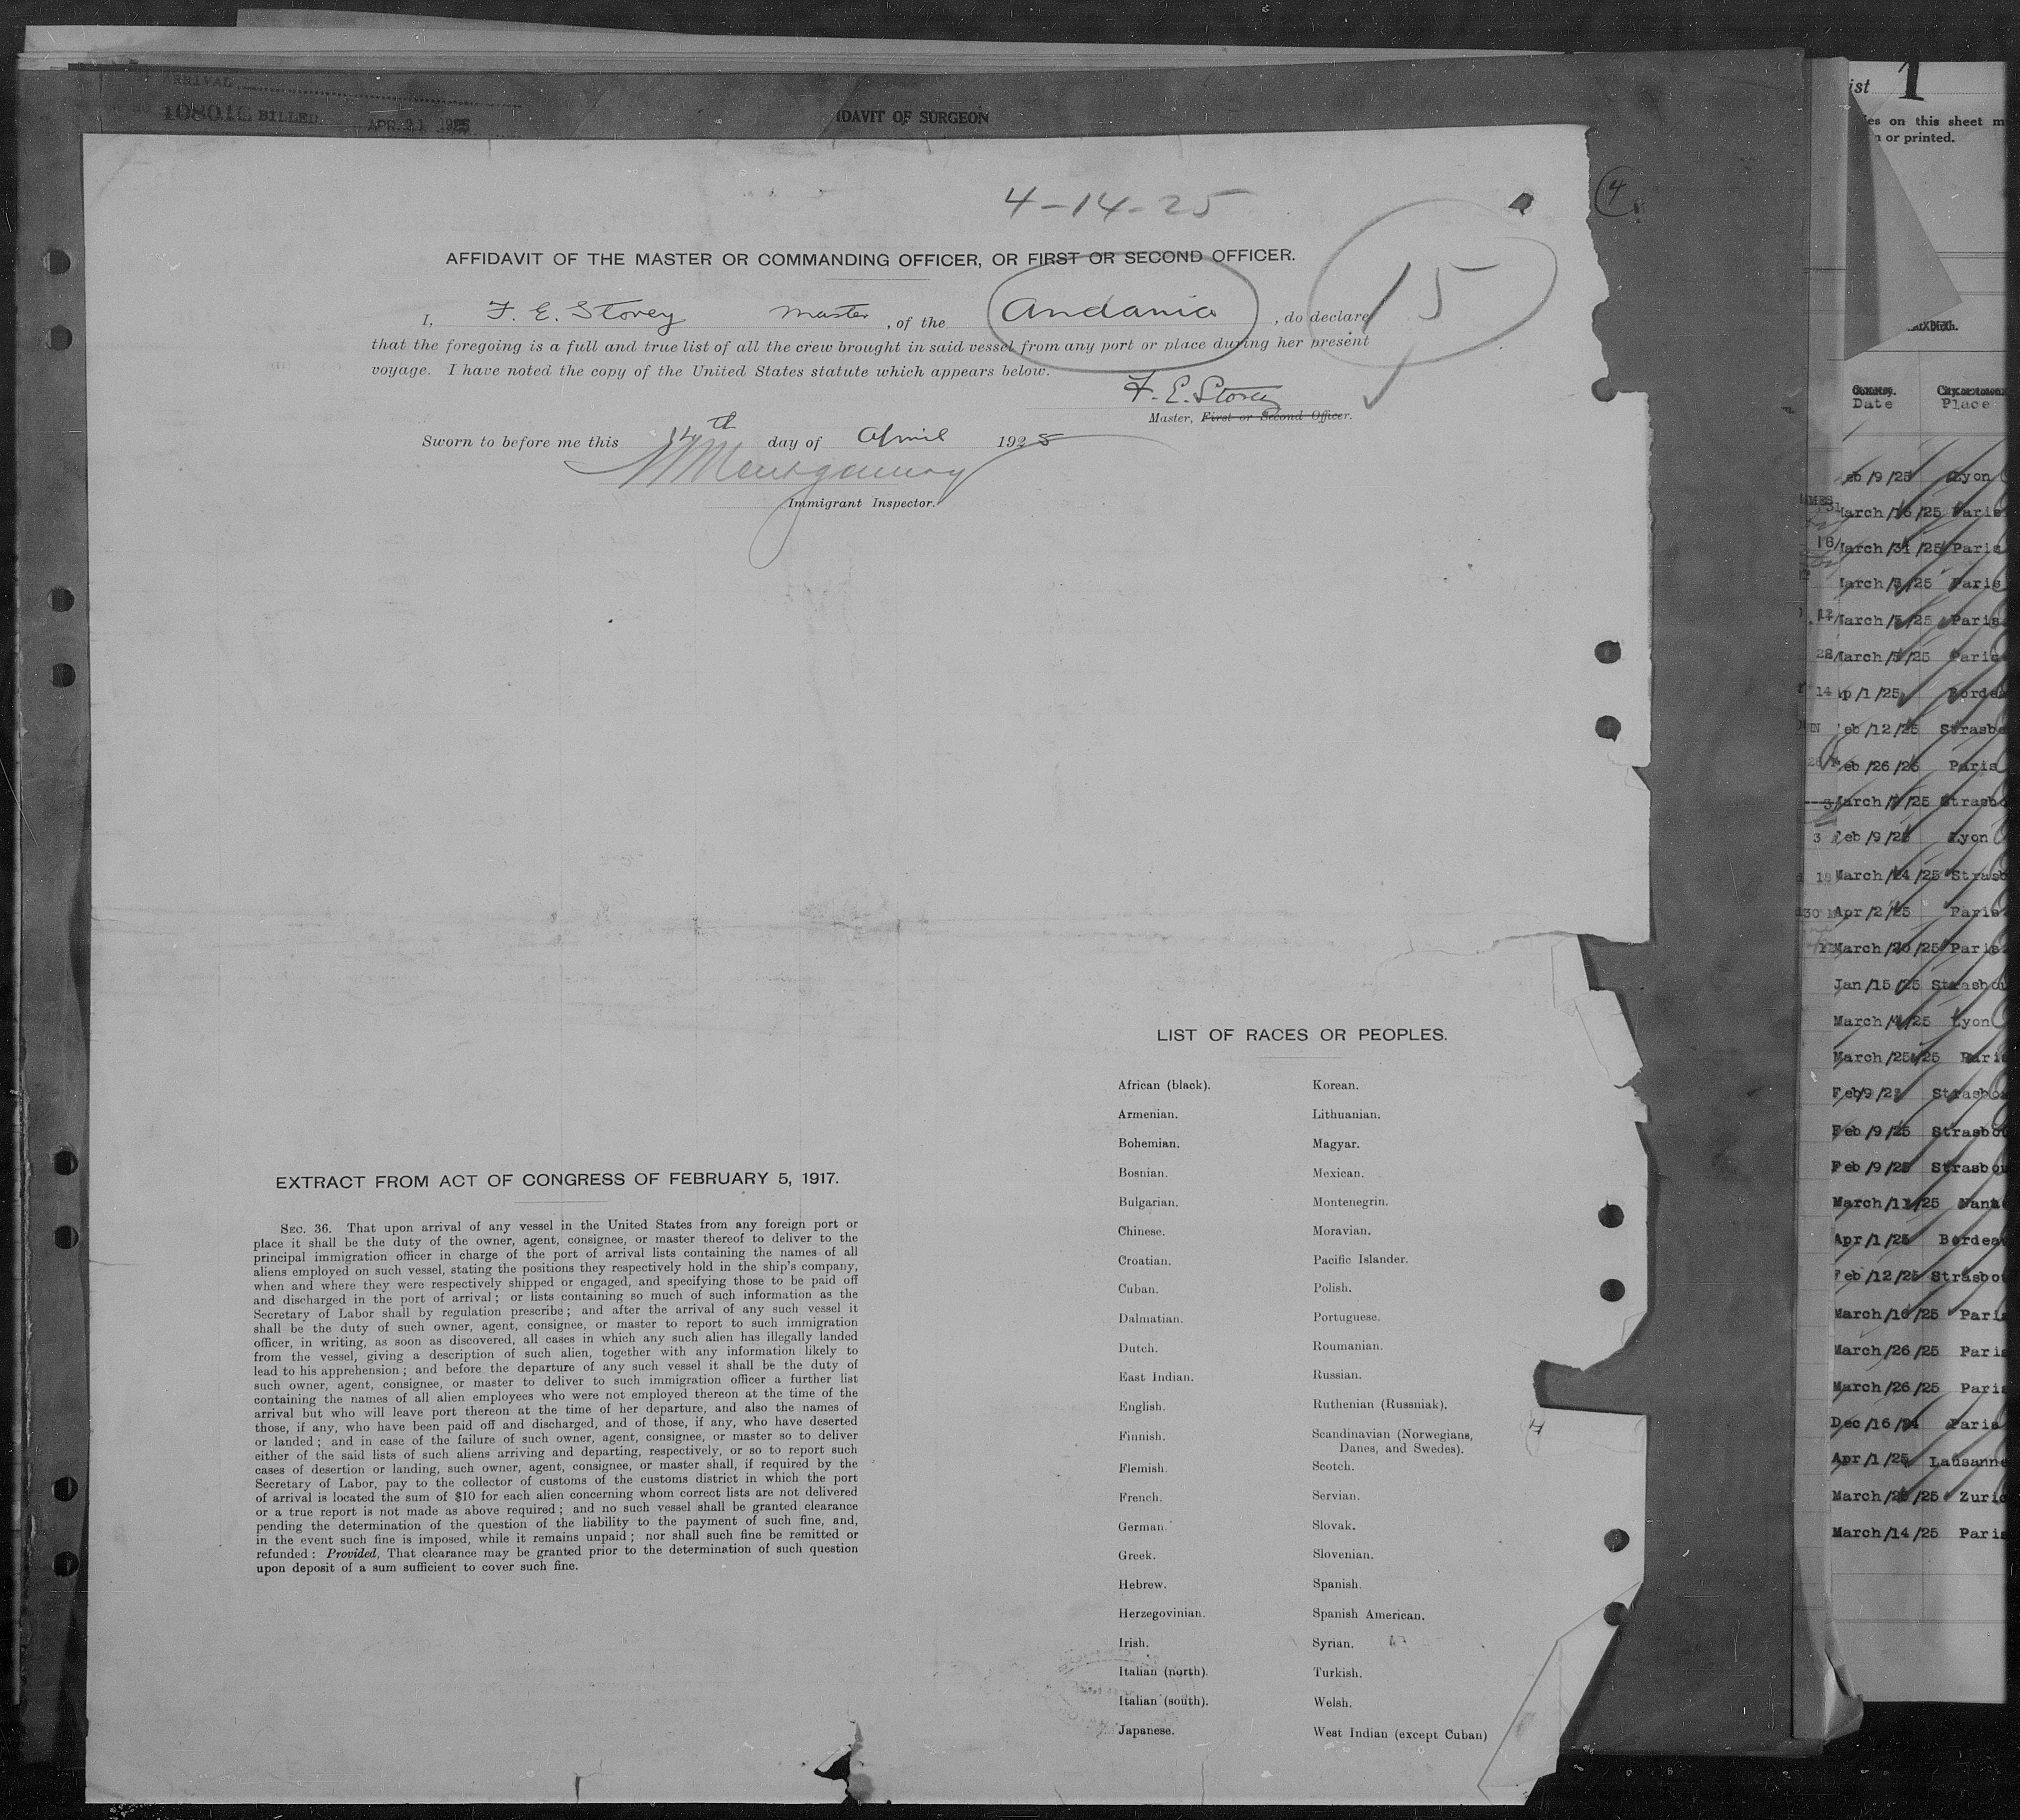 ARRIVAL
BILLED APR 21 1925
IDAVIT OF SURGEON
4-14-25
4
15
AFFIDAVIT OF THE MASTER OR COMMANDING OFFICER, OR FIRST OR SECOND OFFICER.
I, F. E. Storey Master, of the Andania, do declare
that the foregoing is a full and true list of all the crew brought in said vessel from any port or place during her present
voyage. I have noted the copy of the United States statute which appears below.
F. E. Storey
Master, First or Second Officer.
Sworn to before me this 14th day of April 1925
Montgomery
Immigrant Inspector.
EXTRACT FROM ACT OF CONGRESS OF FEBRUARY 5, 1917.
SEC. 36. That upon arrival of any vessel in the United States from any foreign port or
place it shall be the duty of the owner, agent, consignee, or master thereof to deliver to the
principal immigration officer in charge of the port of arrival lists containing the names of all
aliens employed on such vessel, stating the positions they respectively hold in the ship's company,
when and where they were respectively shipped or engaged, and specifying those to be paid off
and discharged in the port of arrival; or lists containing so much of such information as the
Secretary of Labor shall by regulation prescribe; and after the arrival of any such vessel it
shall be the duty of such owner, agent, consignee, or master to report to such immigration
officer, in writing, as soon as discovered, all cases in which any such alien has illegally landed
from the vessel, giving a description of such alien, together with any information likely to
lead to his apprehension; and before the departure of any such vessel it shall be the duty of
such owner, agent, consignee, or master to deliver to such immigration officer a further list
containing the names of all alien employees who were not employed thereon at the time of the
arrival but who will leave port thereon at the time of her departure, and also the names of
those, if any, who have been paid off and discharged, and of those, if any, who have deserted
or landed; and in case of the failure of such owner, agent, consignee, or master so to deliver
either of the said lists of such aliens arriving and departing, respectively, or so to report such
cases of desertion or landing, such owner, agent, consignee, or master shall, if required by the
Secretary of Labor, pay to the collector of customs of the customs district in which the port
of arrival is located the sum of $10 for each alien concerning whom correct lists are not delivered
or a true report is not made as above required; and no such vessel shall be granted clearance
pending the determination of the question of the liability to the payment of such fine, and,
in the event such fine is imposed, while it remains unpaid; nor shall such fine be remitted or
refunded: Provided, That clearance may be granted prior to the determination of such question
upon deposit of a sum sufficient to cover such fine.
LIST OF RACES OR PEOPLES.
African (black).
Armenian.
Bohemian.
Bosnian.
Bulgarian.
Chinese.
Croatian.
Cuban.
Dalmatian.
Dutch.
East Indian.
English.
Finnish.
Flemish.
French.
German.
Greek.
Hebrew.
Herzegovinian.
Irish.
Italian (north).
Italian (south).
Japanese.
Korean.
Lithuanian.
Magyar.
Mexican.
Montenegrin.
Moravian.
Pacific Islander.
Polish.
Portuguese.
Roumanian.
Russian.
Ruthenian (Russniak).
Scandinavian (Norwegians,
Danes, and Swedes).
Scotch.
Servian.
Slovak.
Slovenian.
Spanish.
Spanish American.
Syrian.
Turkish.
Welsh.
West Indian (except Cuban)
ist 1
es on this sheet m
n or printed.
Date Place
eb/9/25 Lyon
March/16/25 Paris
March/31/25 Paris
March/5/25 Paris
March/5/25 Paris
March/5/25 Paris
Ap/1/25 Bordea
Feb/12/25 Strasbo
Feb/26/25 Paris
March/ /25 Strasbo
Feb/9/25 Lyon
March/14/25 Strasb
Apr/2/25 Paris
March/20/25 Paris
Jan/15/25 Strasbou
March/4/25 Lyon
March/25/25 Pari
Feb/9/25 Strasbo
Feb/9/25 Strasbou
Feb/9/25 Strasbou
March/11/25 Nant
Apr/1/25 Bordea
Feb/12/25 Strasbou
March/16/25 Pari
March/26/25 Paris
March/26/25 Paris
Dec/16/24 Paris
Apr/1/25 Lausanne
March/26/25 Zuric
March/14/25 Paris